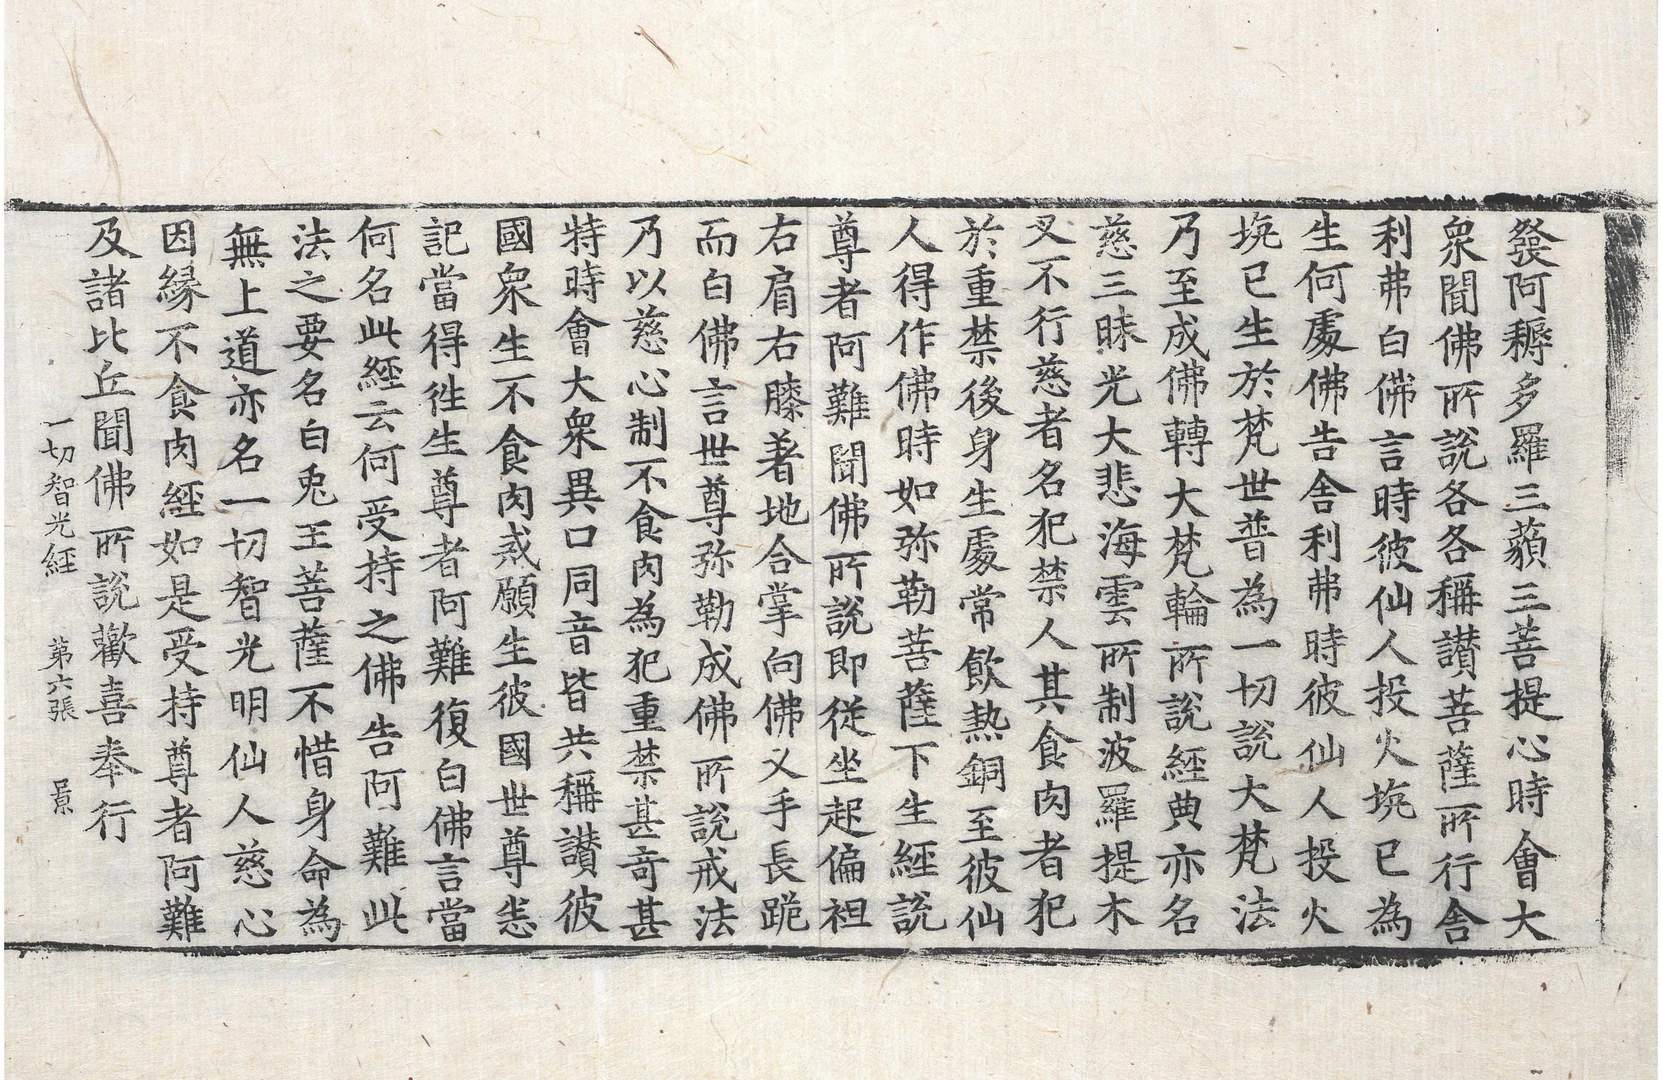 發阿耨多羅三藐三菩提心時會大
衆聞佛所說各各稱讃菩薩所行舍
利弗白佛言時彼仙人投火坑已為
生何處佛告舍利弗時彼仙人投火
坑已生於梵世普為一切說大梵法
乃至成佛轉大梵輪所說經典亦名
慈三昧光大悲海雲所制波羅提木
叉不行慈者名犯禁人其食肉者犯
於重禁後身生處常飲熱銅至彼仙
人得作佛時如弥勒菩薩下生經說
尊者阿難聞佛所說即從坐起偏袒
右肩右膝著地合掌向佛叉手長跪
而白佛言世尊弥勒成佛所說戒法
乃以慈心制不食肉為犯重禁甚竒甚
特時會大衆異口同音皆共稱讃彼
國衆生不食肉戒願生彼國世尊悉
記當得徃生尊者阿難復白佛言當
何名此經云何受持之佛告阿難此
法之要名白兎王菩薩不惜身命為
無上道亦名一切智光明仙人慈心
因縁不食肉經如是受持尊者阿難
及諸比丘聞佛所說歡喜奉行
一切智光經 第六張 景